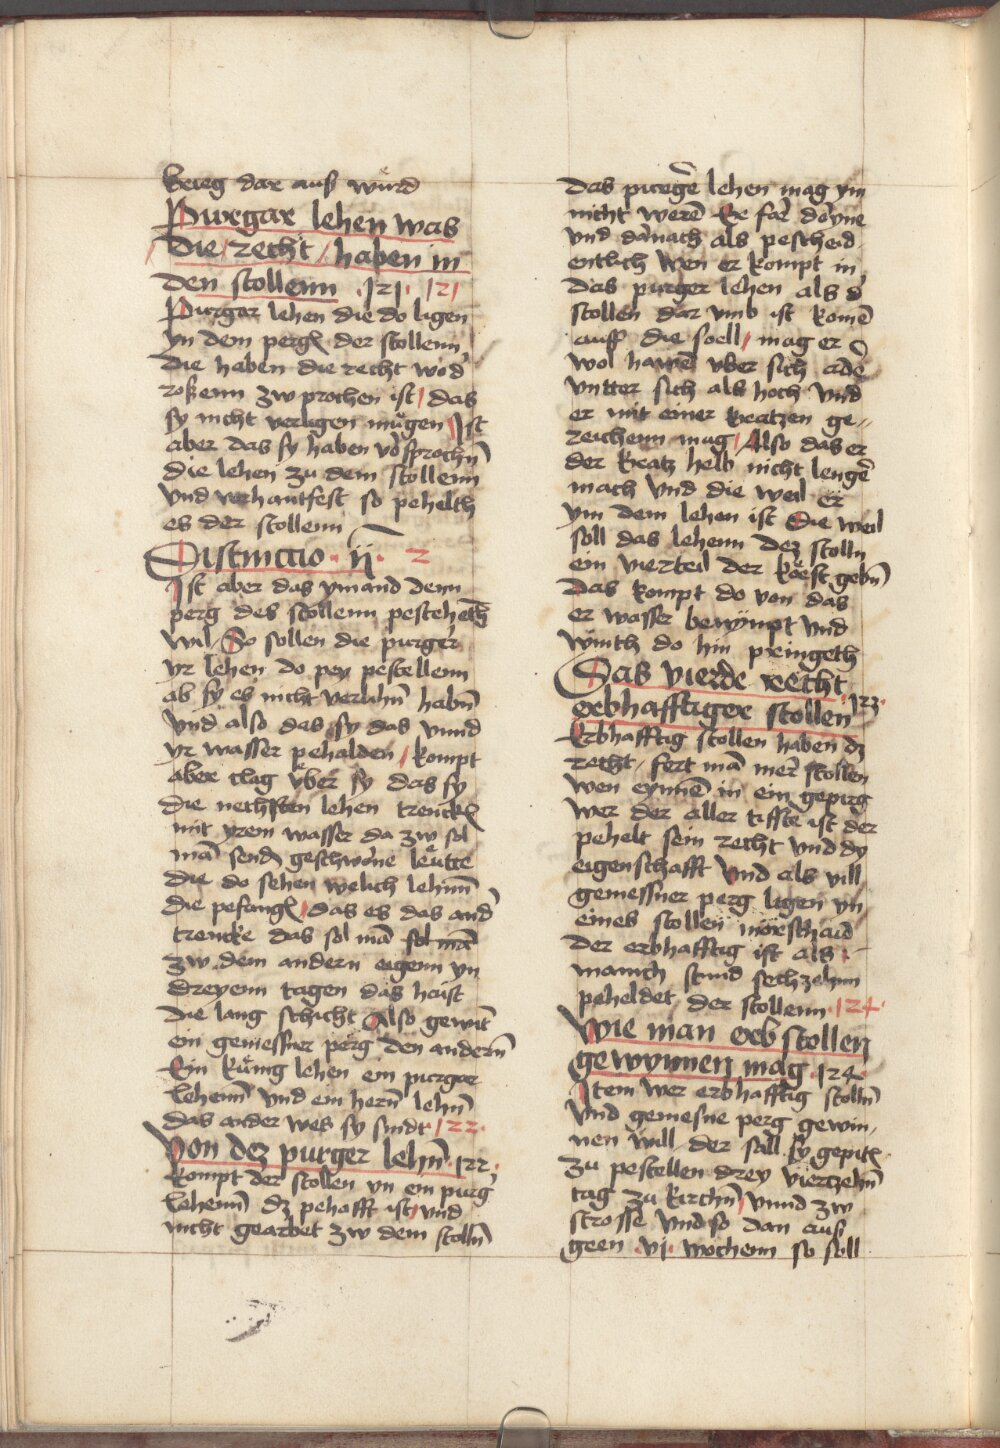 krieg dar auß würd
Purgar lehen was
die recht haben in
den stollenn · 121 · 121
Purgar lehen die do ligen
yn dem perg der stollenn
die haben die recht wo d'
roßenn zw prochen ist das
sy nicht verligen mügen Ist
aber das sy haben v̄sprochn̄
die lehen zu dem stollenn
vnd verhantfest so pehelth
es der stollenn
Distinccio · ij · 2
Ist aber das ymand denn
perg des stollenn pestehēth
wil So sollen die purger
yr lehen do pey pestellenn
ab sy es nicht verluhn̄ habn̄
vnd also das sy das vnnd
yr wasser pehalden kompt
aber clag vber sy das sy
die nechsten lehen trenckn̄
mit yrem wasser da zw sol
mā sendn̄ geschworne leütte
die do sehen welich lehnn̄
die pefangn̄ das es das and'
trencke das sol mā sol mā
zw dem andern eigenn yn
dreyenn tagen das haist
die lang schicht Also gewīt
ein gemessner perg den andern̄
Ein küing lehen ein purgar
lehenn̄ vnd ein hern̄ lehn̄
das ander wes sy sindt · 122 ·
Von dez purger lehn̄ · 122 ·
kompt der stollen yn ein purg'
lehenn̄ dz pehafft ist vnd
nicht gearbet zw dem stolln̄
das purger lehen mag ym
nicht werē Er far deyne
vnd darnach als pescheid
entlich wen er kompt in
das purger lehen als d'
stollen dar vmb ist komē
auff die soell mag er
wol hawē vber sich adē
vntter sich als hoch vnd
er mit einer kratzen ge„
reichenn mag Also das er
der kratz helb nicht lengē
mach vnd die weil er
ym dem lehen ist Die weil
soll das lehenn dez stolln
ein vierteil der köest gebn̄
Das kompt do von das
er wasser benympt vnd
winth do hin pringeth
Das vierde recht
erbhafftiger stollen · 123 ·
Erbhafftig stollen haben dz
recht fert mā mer stollen
wen eynnē in ein gepirg
wer der aller tiffste ist der
pehelt sein recht vnd dy
eigenschafft Vnd als vill
gemessner perg ligen yn
eines stollen morschaid
der erbhafftig ist als
manich stund sechzehnn
peheldet der stollenn · 124 ·
Wie man erb stollen
gewynnen mag · 124 ·
Item wer erbhafftig stolln̄
vnd gemesne perg gewin„
nen will der sall sy gepitn̄
zu pestellen drey vierczehn̄
tag zu kirchn̄ vnnd zw
strosse vnd so dan auß
geen · vj · wochenn so soll